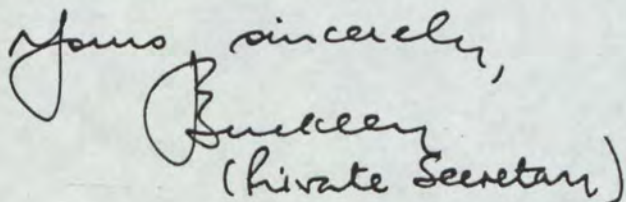 Yours sincerely,
Buckley
(Private Secretary)